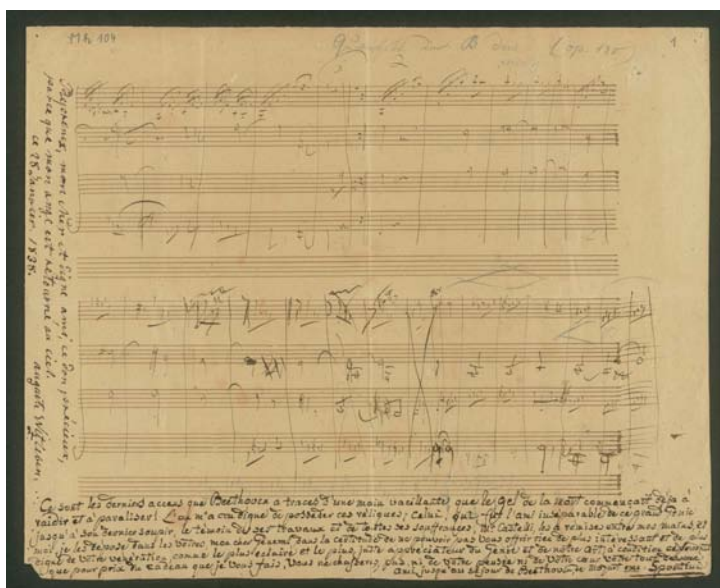 Sth 104
Quartett aus B dur (op. 130)
1
2
Recevez, mon cher et digne ami, ce don précieux,
parce que mon ange est retourné au ciel.
ce 28 Janvier 1838.
auguste
Ce sont les derniers accens que Beethoven a tracés d'une main vacillante que le gel de la mort commençait déjà à
raidir et à paraliser! L'on m'a cru digne de posséder ces réliques; celui, qui fut l'ami inséparable de ce grand Génie
jusqu'à son dernier soupir, le témoin de ses travaux et de toutes ses souffrances, Mr Castelli, les a remises entre mes mains, et
moi, je les dépose dans les vôtres, mon cher dans la certitude de ne pouvoir pas vous offrir rien de plus intéressant et de plus
digne de votre vénération, comme le plus éclairé et le plus juste appréciateur du Génie et de notre art; à condition
que pour prix du cadeau que je vous fais, vous ne chasserez, plus, ni de votre pensée ni de votre cœur votre
ami, jusqu'au séjour de Beethoven, le Spontini